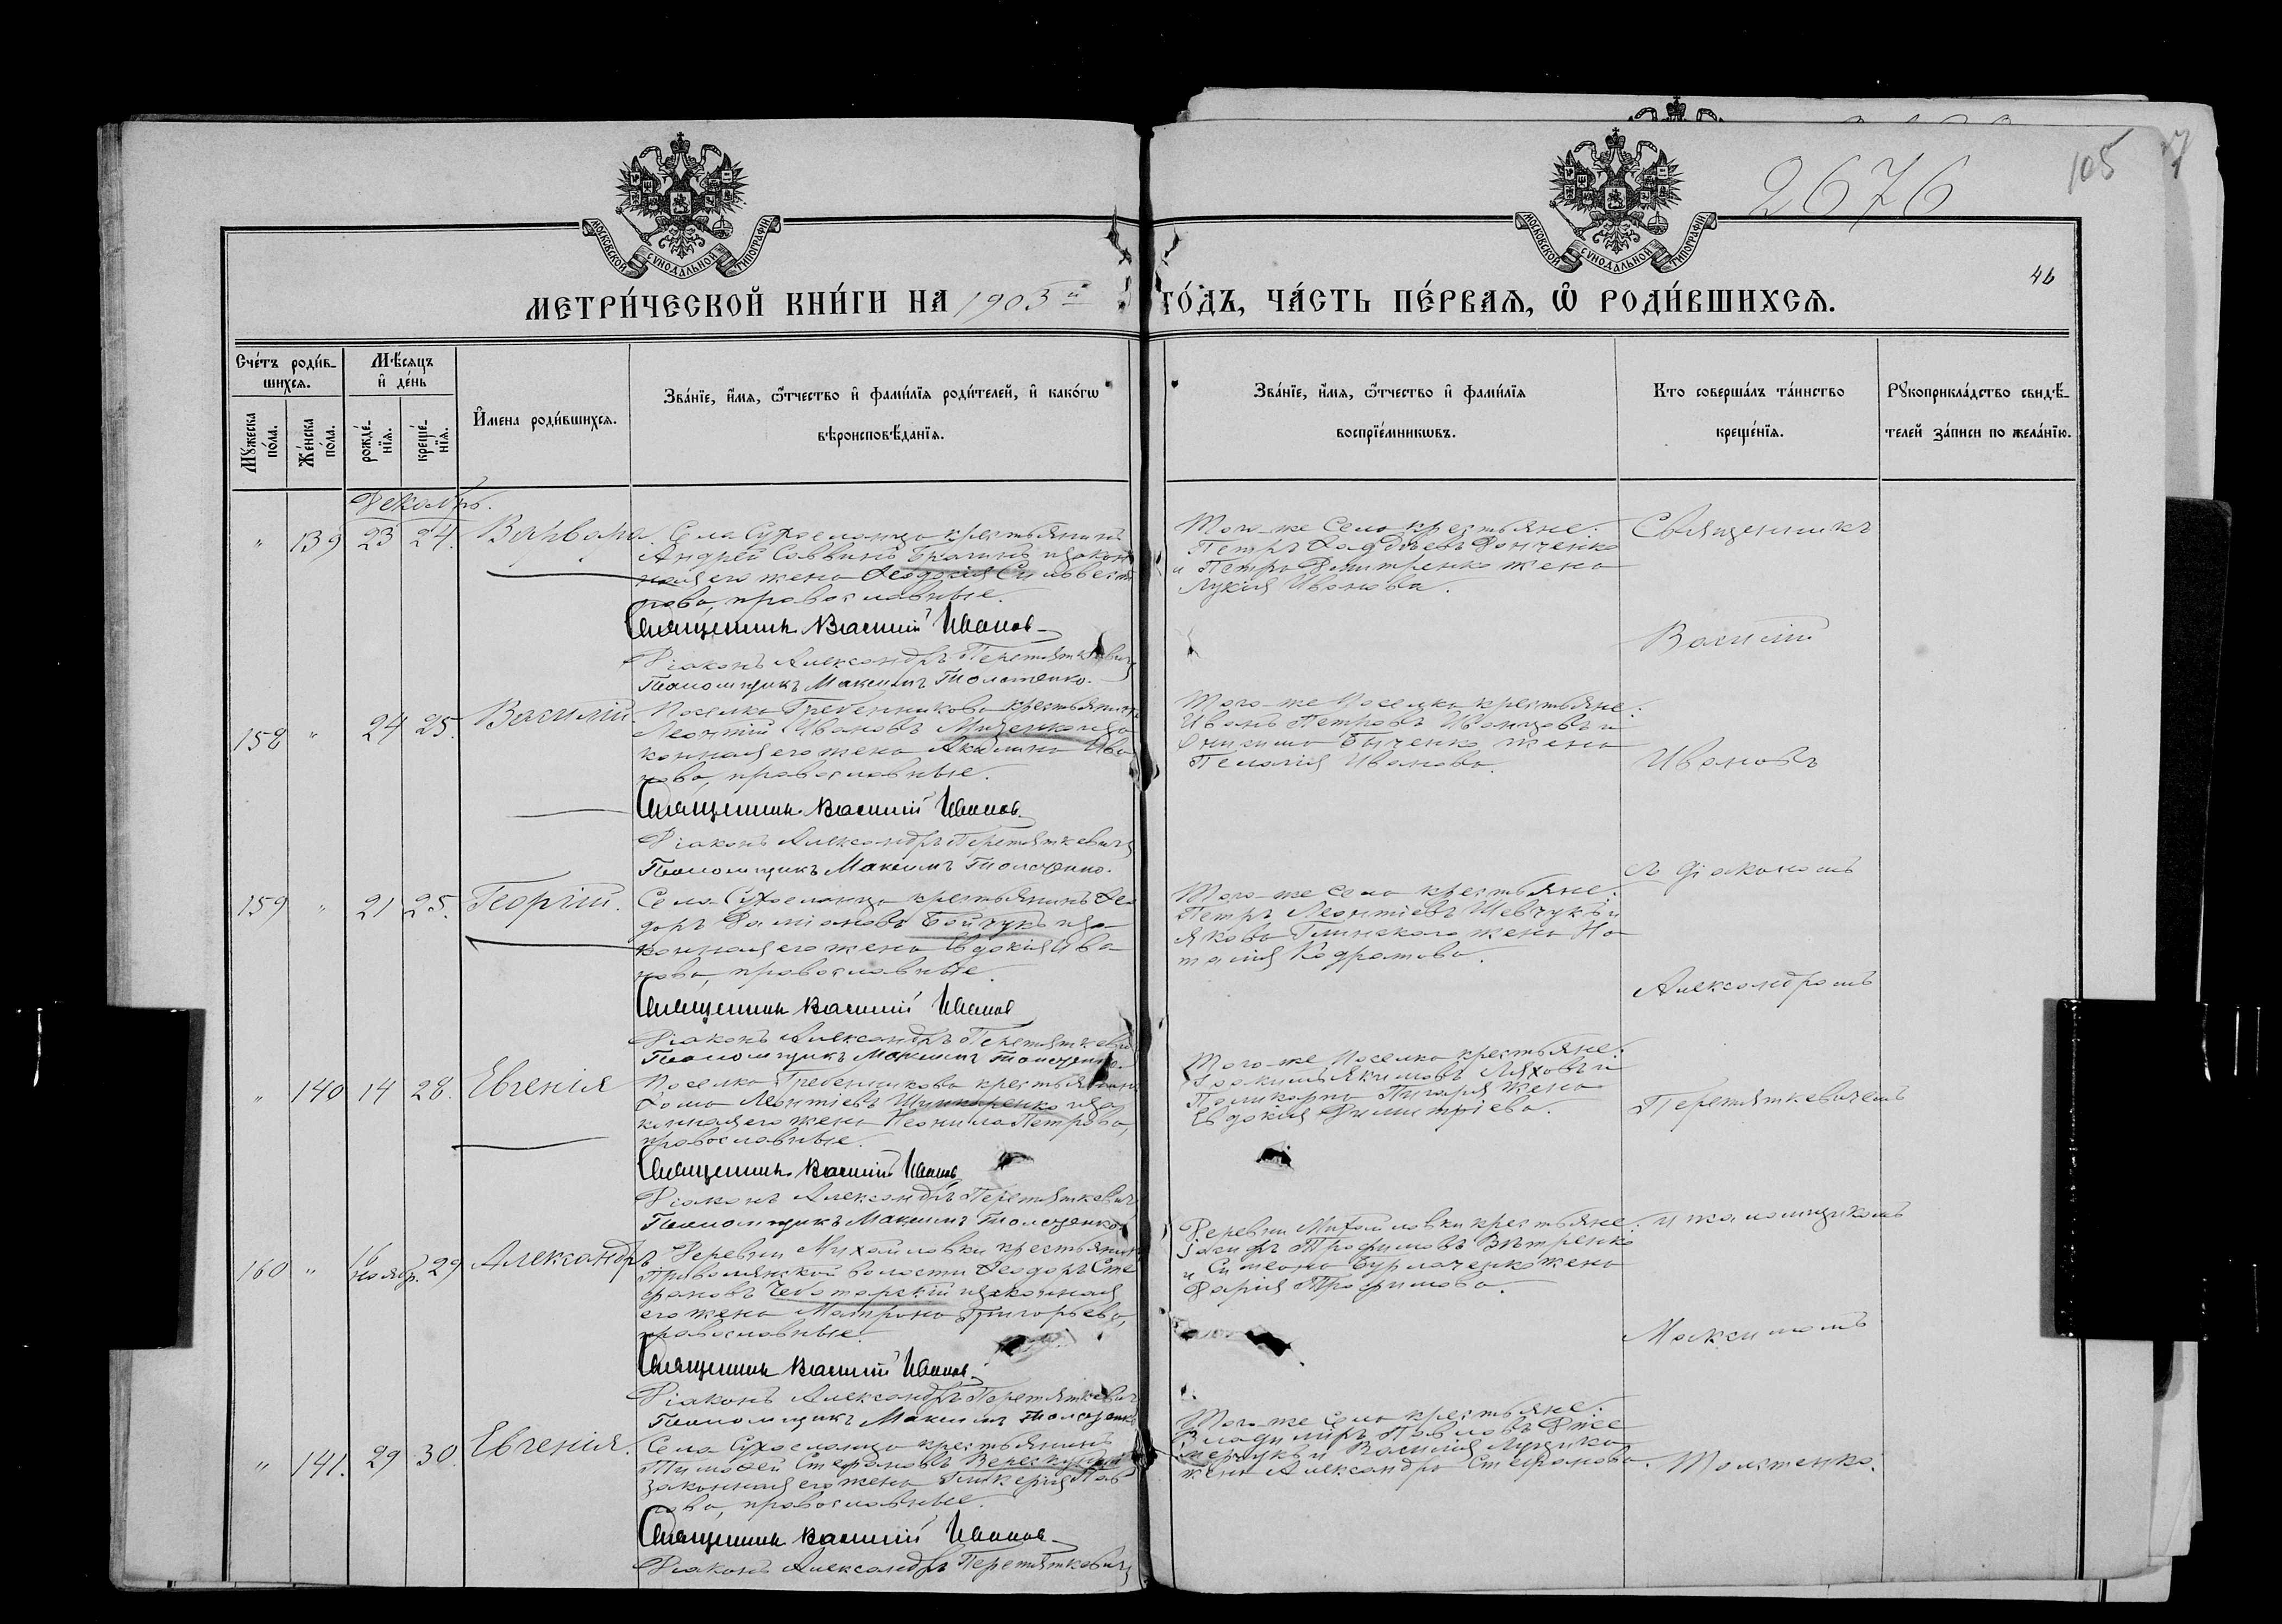 2676
105
МОСКОВСКОЙ СѴНОДАЛЬНОЙ ТИПОГРАФІИ
МОСКОВСКОЙ СѴНОДАЛЬНОЙ ТИПОГРАФІИ
46
МЕТРИ́ЧЕСКОЙ КНИ́ГИ НА 1903й ГО́ДЪ, ЧА́СТЬ ПЕ́РВАЯ, Ѡ҆ РОДИ́ВШИХСЯ.
Сче́тъ роди́в-
шихся.
Мꙋ́жеска по́ла.
Же́нска по́ла.
Мѣ́сяцъ
и҆ де́нь
рожде́-
нїя.
креще́-
нїя.
И҆мена роди́вшихся.
Зва́нїе, и҆́мя, ѻ҆́тчество и҆ фами́лїя роди́телей, и҆ како́гѡ
вѣроисповѣ́данїя.
Зва́нїе, и҆́мя, ѻ҆́тчество и҆ фами́лїя
воспрїе́мникѡвъ.
Кто соверша́лъ та́инство
креще́нїя.
Рꙋкоприкла́дство свидѣ́-
телей за́писи по жела́нїю.
Декабрь.
" 139 23 24. Варвара.
Села Сухоеланца крестьянинъ
Андрей Саввинъ и закон
ная его жена Ѳеодосія Сильвест
рова, православные.
Священникъ Василій Иванов
Діаконъ Александръ Перетяткевичъ
Псаломщикъ Максимъ Толстенко.
Того-же Села крестьяне:
Петръ Ѳаддѣевъ Донченко
и Петра Дмитренко жена
Лукія Иванова.
158 " 24 25. Василій.
Поселка Гребенникова крестьянинъ
Леонтій Ивановъ и за
конная его жена Акилина Ива
нова, православные.
Священникъ Василій Иванов
Діаконъ Александръ Перетяткевичъ
Псаломщикъ Максимъ Толстенко.
Того-же Поселка крестьяне:
Иванъ Петровъ Иванцовъ и
Онисима Быченко жена
Пелагія Иванова.
159 " 21 25. Георгій.
Села Сухоеланца крестьянинъ Ѳео
доръ Даміановъ Бойчукъ и за
конная его жена Евдокія Ива
нова, православные.
Священникъ Василій Иванов
Діаконъ Александръ Перетяткевичъ
Псаломщикъ Максимъ Толстенко.
Того-же Села крестьяне:
Петръ Леонтіевъ Шевчукъ и
Якова Глинского жена На
талія Кодратова.
" 140 14 28. Евгенія
Поселка Гребенникова крестьянинъ
Ѳома Леонтіевъ Шинкаренко и за
конная его жена Неонила Петрова,
православные.
Священникъ Василій Иванов
Діаконъ Александръ Перетяткевичъ
Псаломщикъ Максимъ Толстенко
Того-же Поселка крестьяне:
Іоакимъ Якимовъ Ляховъ и
Поликарпа Пугаря жена
Евдокія Димитріева.
160 " 16 ноябр. 29 Александръ
Деревни Михайловки крестьянинъ
Привольянской волости Ѳеодоръ Сте
фановъ Чеботарскій и законная
его жена Матрона Григорьева,
православные.
Священникъ Василій Иванов
Діаконъ Александръ Перетяткевичъ
Псаломщикъ Максимъ Толстенко
Деревни Михайловки крестьяне:
Іосифъ Трофимовъ Вѣтренко
и Симеона Бурлаченко жена
Дарія Трофимова.
" 141. 29 30. Евгенія.
Села Сухоеланца крестьянинъ
Тимоѳей Стефановъ и
законная его жена Гликерія Пав
лова, православные.
Священникъ Василій Иванов
Діаконъ Александръ Перетяткевичъ
Того-же Села крестьяне:
Владиміръ Павловъ
и Василія Луцика
жена Александра Стефанова.
Священникъ
Василій
Ивановъ
съ діакономъ
Александромъ
Перетяткевичемъ
и псаломщикомъ
Максимомъ
Толстенко.